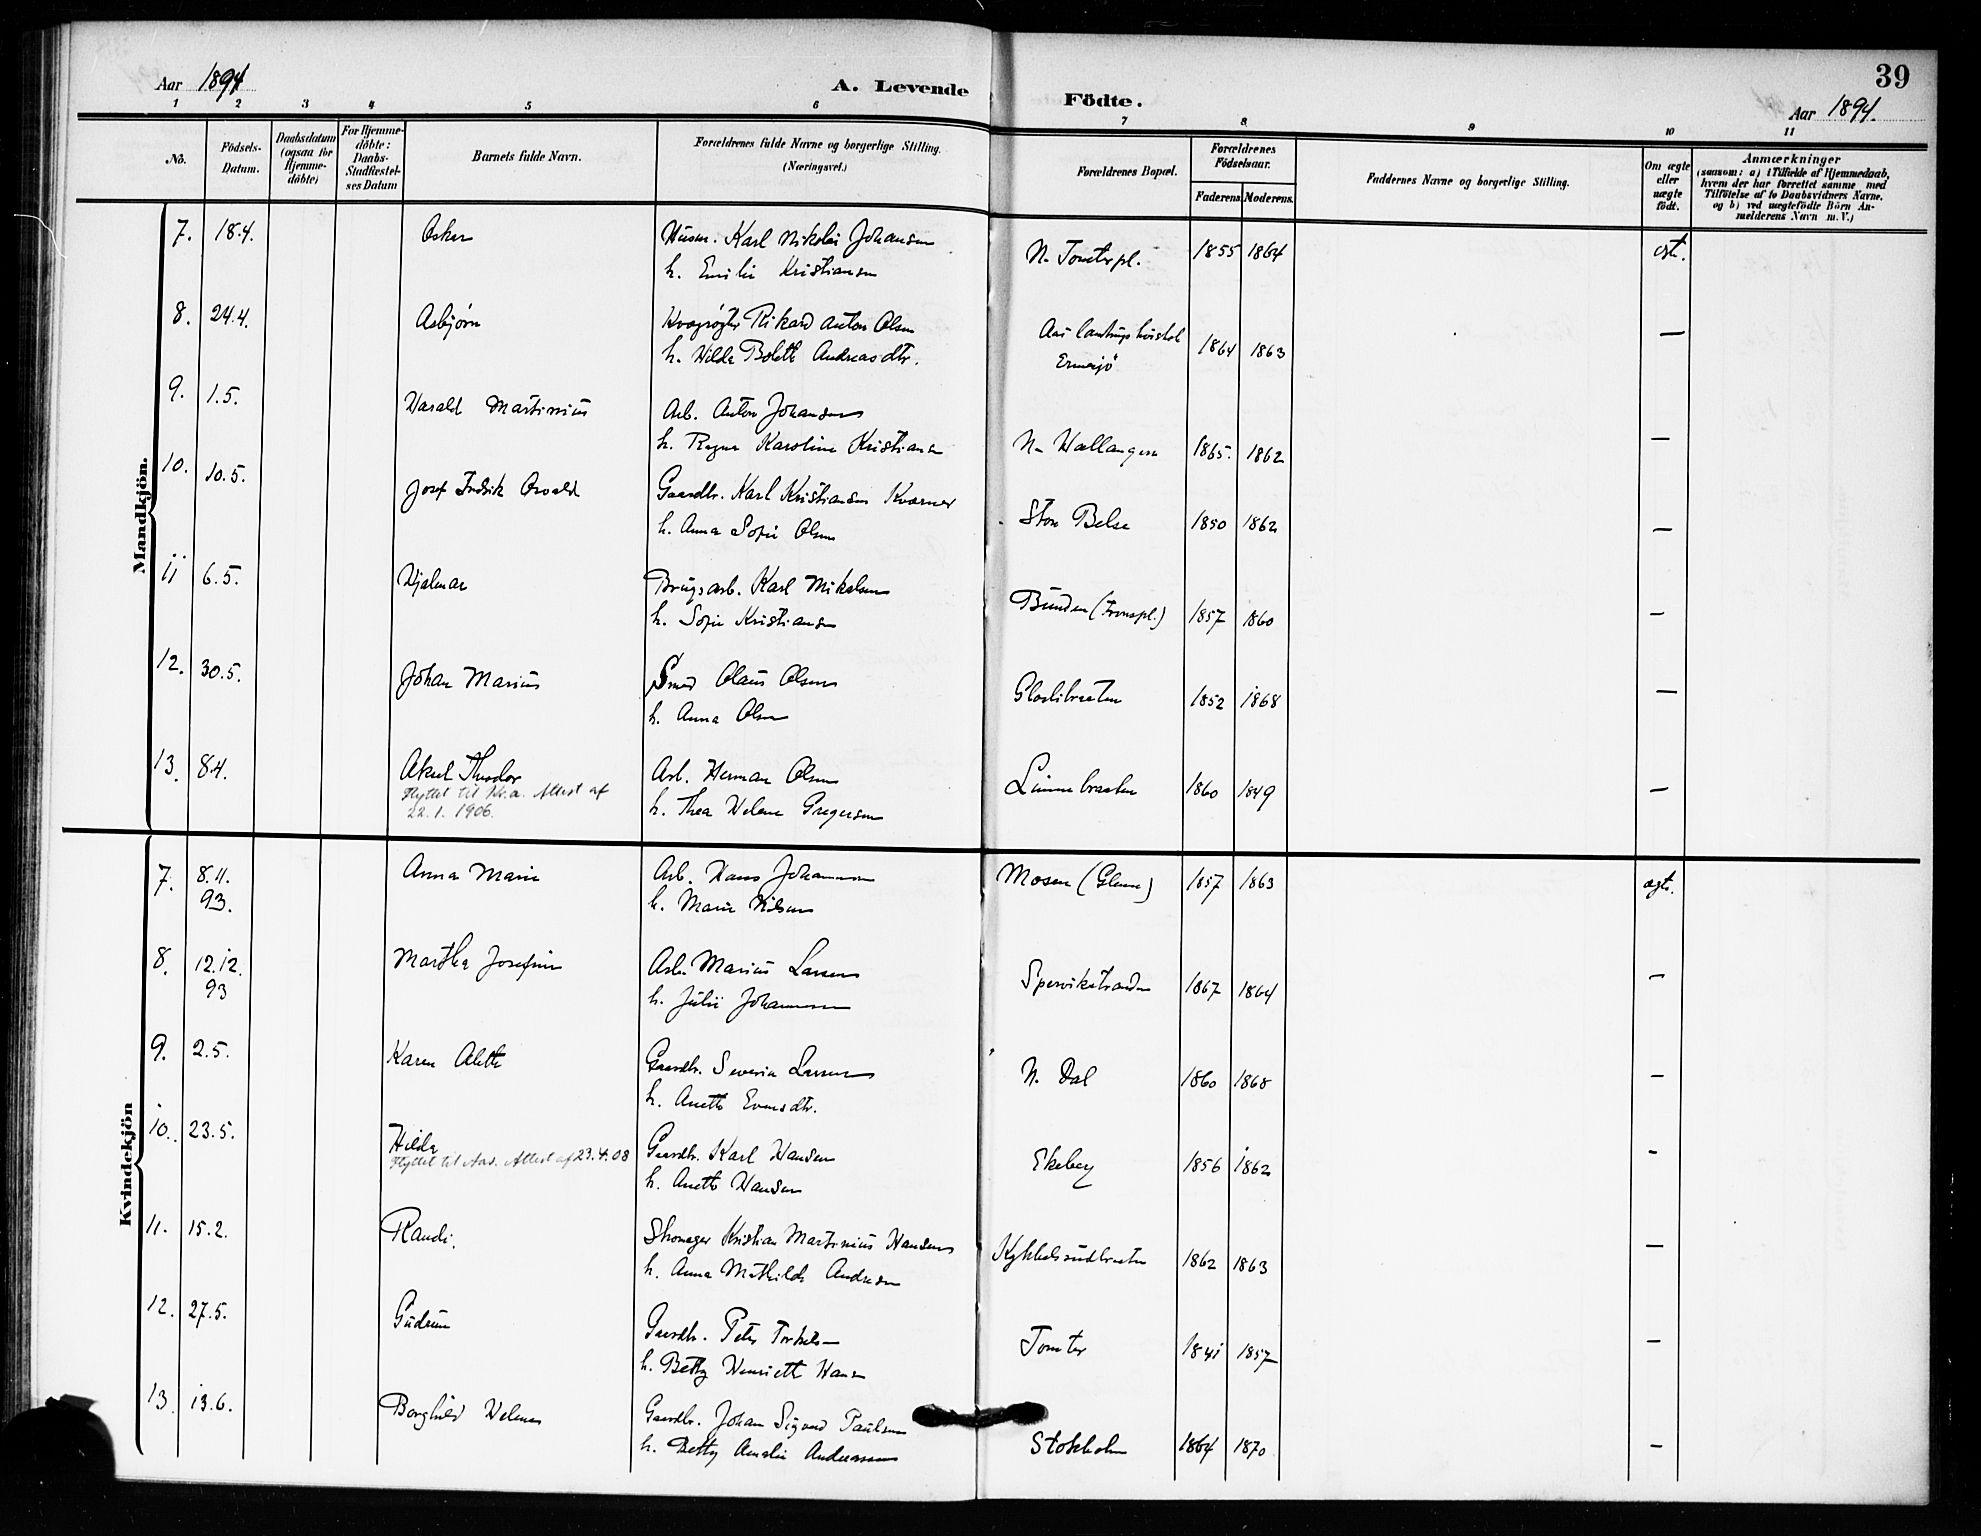 Aar 1894
A. Levende
Födte.
39
Aar 1894.
1 2 3 4 5 6 7 8 9 10 11
No.
Födsels-
Datum.
Daabsdatum
(ogsaa for
Hjemme-
döbte)
For Hjemme-
döbte:
Daabs-
Stadfæstel-
ses Datum
Barnets fulde Navn.
Forældrenes fulde Navne og borgerlige Stilling.
(Næringsvei.)
Forældrenes Bopæl.
Forældrenes
Födselsaar.
Faderens Moderens.
Faddernes Navne og borgerlige Stilling.
Om ægte
eller
uægte
födt.
Anmærkninger
(saasom: a) i Tilfælde af Hjemmedaab,
hvem der har forrettet samme med
Tilföielse af to Daabsvidners Navne.
og b) ved uægtefödte Börn An-
melderens Navn m. V.)
Mandkjön.
7. 18.4. Asker Husm. Karl Nikolai Johansen N. Tomterpl. 1855 1864 egt.
h. Emilie Kristiansen
8. 24.4. Asbjørn Kvægrøgter Rikard Anton Olsen Aas 1864 1863 —
h. Hilda Bolette Andreasdtr.
9. 1.5. Harald Martinius Arb. Anton Johansen
h. Ragna Karoline Kristiansen N. Hallangen 1865. 1862 —
10. 10.5. Josef Fredrik Osvald Gaardbr. Karl Kristiansen Kværner Store Belse 1850 1862 —
h. Anna Sofie Olsen
11 6.5. Hjalmar Brugsarb. Karl Mikelsen Bunden (Fronspl.) 1857 1860 —
h. Sofie Kristiansen
12. 30.5. Johan Marius Smed Olaus Olsen 1852 1868 —
h. Anna Olsen
13. 8.4. Aksel Theodor Arb. Herman Olsen 1860 1849 —
Flyttet til Kr.a. Attest af
22.1.1906. h. Thea Helene Gregersen
Kvindekjön
7. 8.11. Anna Marie Arb. Hans Johannesen Mosen (Glenne) 1857 1863 ægte.
93. h. Marie Nilsen
8. 12.12. Martha Josefine Arb. Marius Larsen Spervikstranden 1867 1864 —
93 h. Julie Johannesen
9. 2.5. Karen Alette Gaardbr. Severin Larsen N. Dal 1860 1868 —
h. Anette Evensdtr.
10. 23.5. Hilda Gaardbr. Karl Hansen Ekeberg 1856 1862 -
Flyttet til Aas. Attest af 23.4.08
h. Anette Hansen
11. 15.2. Randi. Skomager Kristian Martinius Hansen Kykkelsrudbraaten 1862 1863 —
h. Anna Mathilde Andresen
12. 27.5. Gudrun Gaardbr. Peter Torkelsen Tomter 1841 1857 —
h. Betty Henriette Hansen
13. 13.6. Borghild Helene Gaardbr. Johan Sigvard Paulsen Stokholm 1864 1870 —
h. Betty Amalie Andreassen